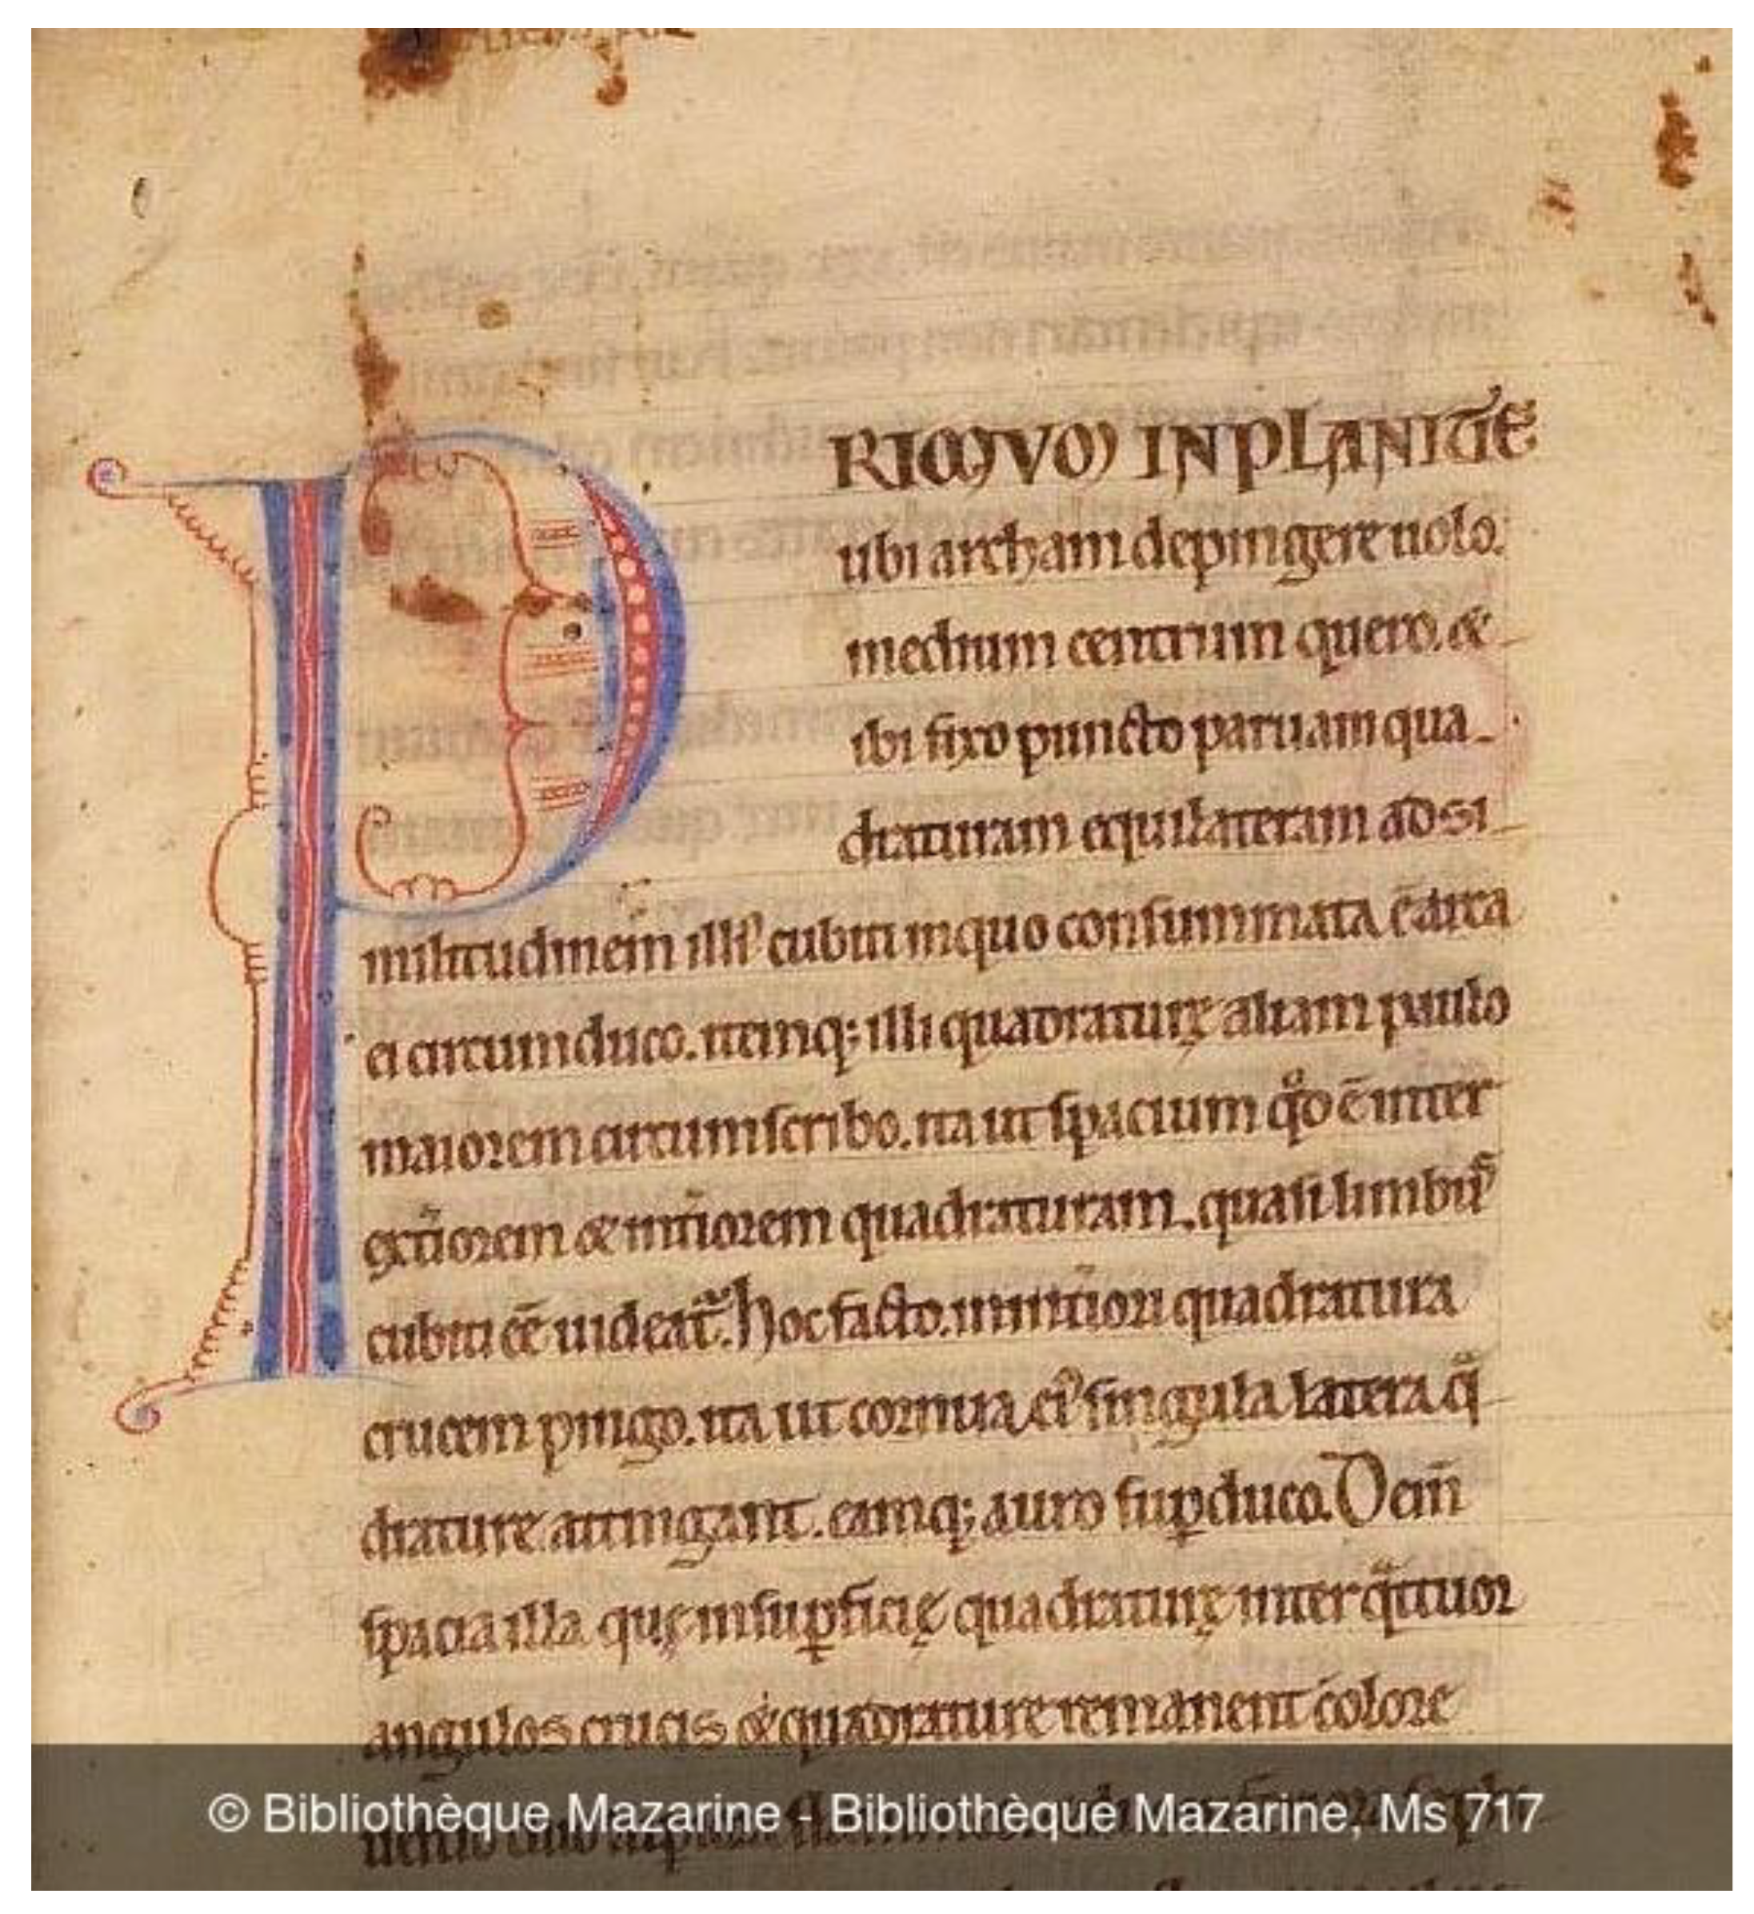 PRIMVM IN PLANITIE
ubi archam depingere uolo.
medium centrum quero. &
ibi fixo puncto paruam qua-
draturam equilateram ad si-
militudinem illiꝰ cubiti in quo consummata ē arca
ei circumduco. itemq; illi quadraturę aliam paulo
maiorem circumscribo. ita ut spacium qͦd ē inter
exťiorem & inťiorem quadraturam. quasi limbuſ
cubiti eē uideat᷑. Hoc facto. in inťiori quadratura
crucem pingo. ita ut cornua eiꝰ singula latera q̄-
drature attingant. eamq; auro suꝑduco. Dein̄
spacia illa que in suꝑficię quadraturę inter q̄ttuor
angulos crucis & quadrature remanent colore
© Bibliothèque Mazarine - Bibliothèque Mazarine, Ms 717